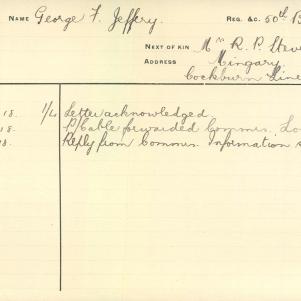 NAME George F. Jeffery. REG. &C. 50th B
NEXT OF KIN Mrs R. P. Stev
ADDRESS Mingary
Cockburn Line
18. 1/4 Letter acknowledged
18 P/Cable forwarded Commrs. Lo
18. Reply from Commrs. Information s